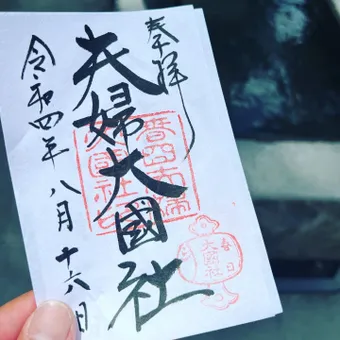 奉拝
夫婦大國社
令和四年八月十六日
春日
大國社